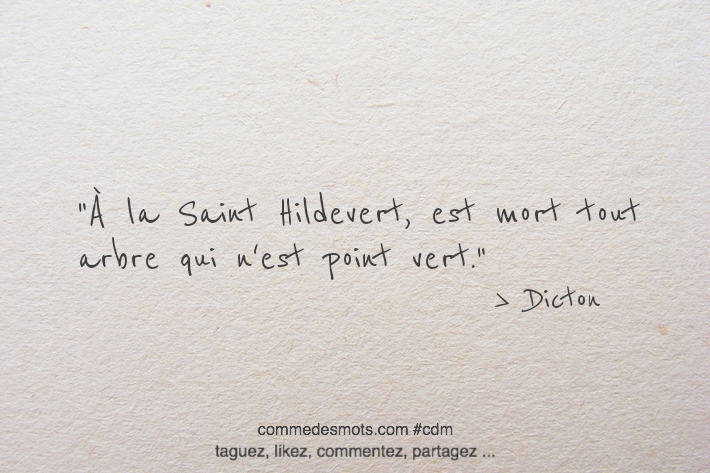 "À la Saint Hildevert, est mort tout
arbre qui n'est point vert."
> Dicton
commedesmots.com #cdm
taguez, likez, commentez, partagez ...